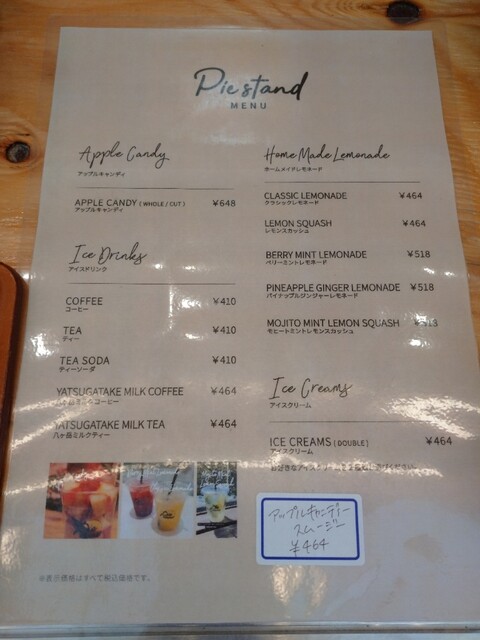 Pie stand
MENU
Apple Candy
アップルキャンディ
APPLE CANDY (WHOLE / CUT) ¥648
アップルキャンディ
Ice Drinks
アイスドリンク
COFFEE ¥410
コーヒー
TEA ¥410
ティー
TEA SODA ¥410
ティーソーダ
YATSUGATAKE MILK COFFEE ¥464
YATSUGATAKE MILK TEA ¥464
八ヶ岳ミルクティー
※表示価格はすべて税込価格です。
Home Made Lemonade
ホームメイドレモネード
CLASSIC LEMONADE ¥464
クラシックレモネード
LEMON SQUASH ¥464
レモンスカッシュ
BERRY MINT LEMONADE ¥518
ベリーミントレモネード
PINEAPPLE GINGER LEMONADE ¥518
パイナップルジンジャーレモネード
MOJITO MINT LEMON SQUASH
モヒートミントレモンスカッシュ
Ice Creams
アイスクリーム
ICE CREAMS (DOUBLE) ¥464
アイスクリーム
アップルキャンディー
スムージー
¥464